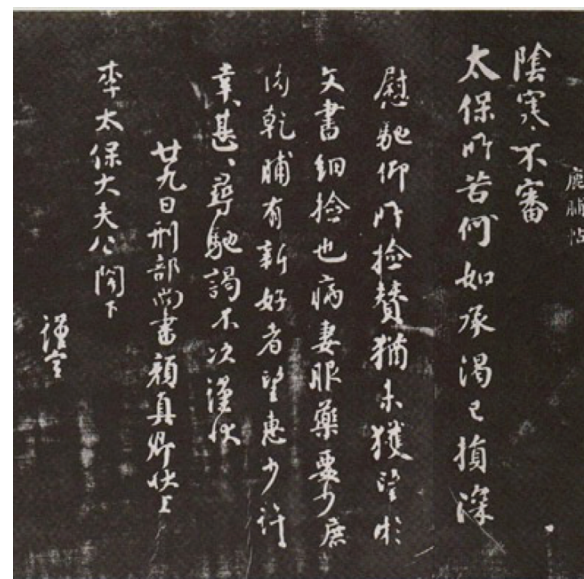 鹿脯帖
陰寒不審
太保所苦何如承渴已損深
慰馳仰所撿贊猶未獲望於
文書細撿也病妻服藥要少鹿
肉乾脯有新好者望惠少許
幸甚々尋馳謁不次謹狀
廿九日刑部尚書顏真卿狀上
李太保大夫公閤下
謹空